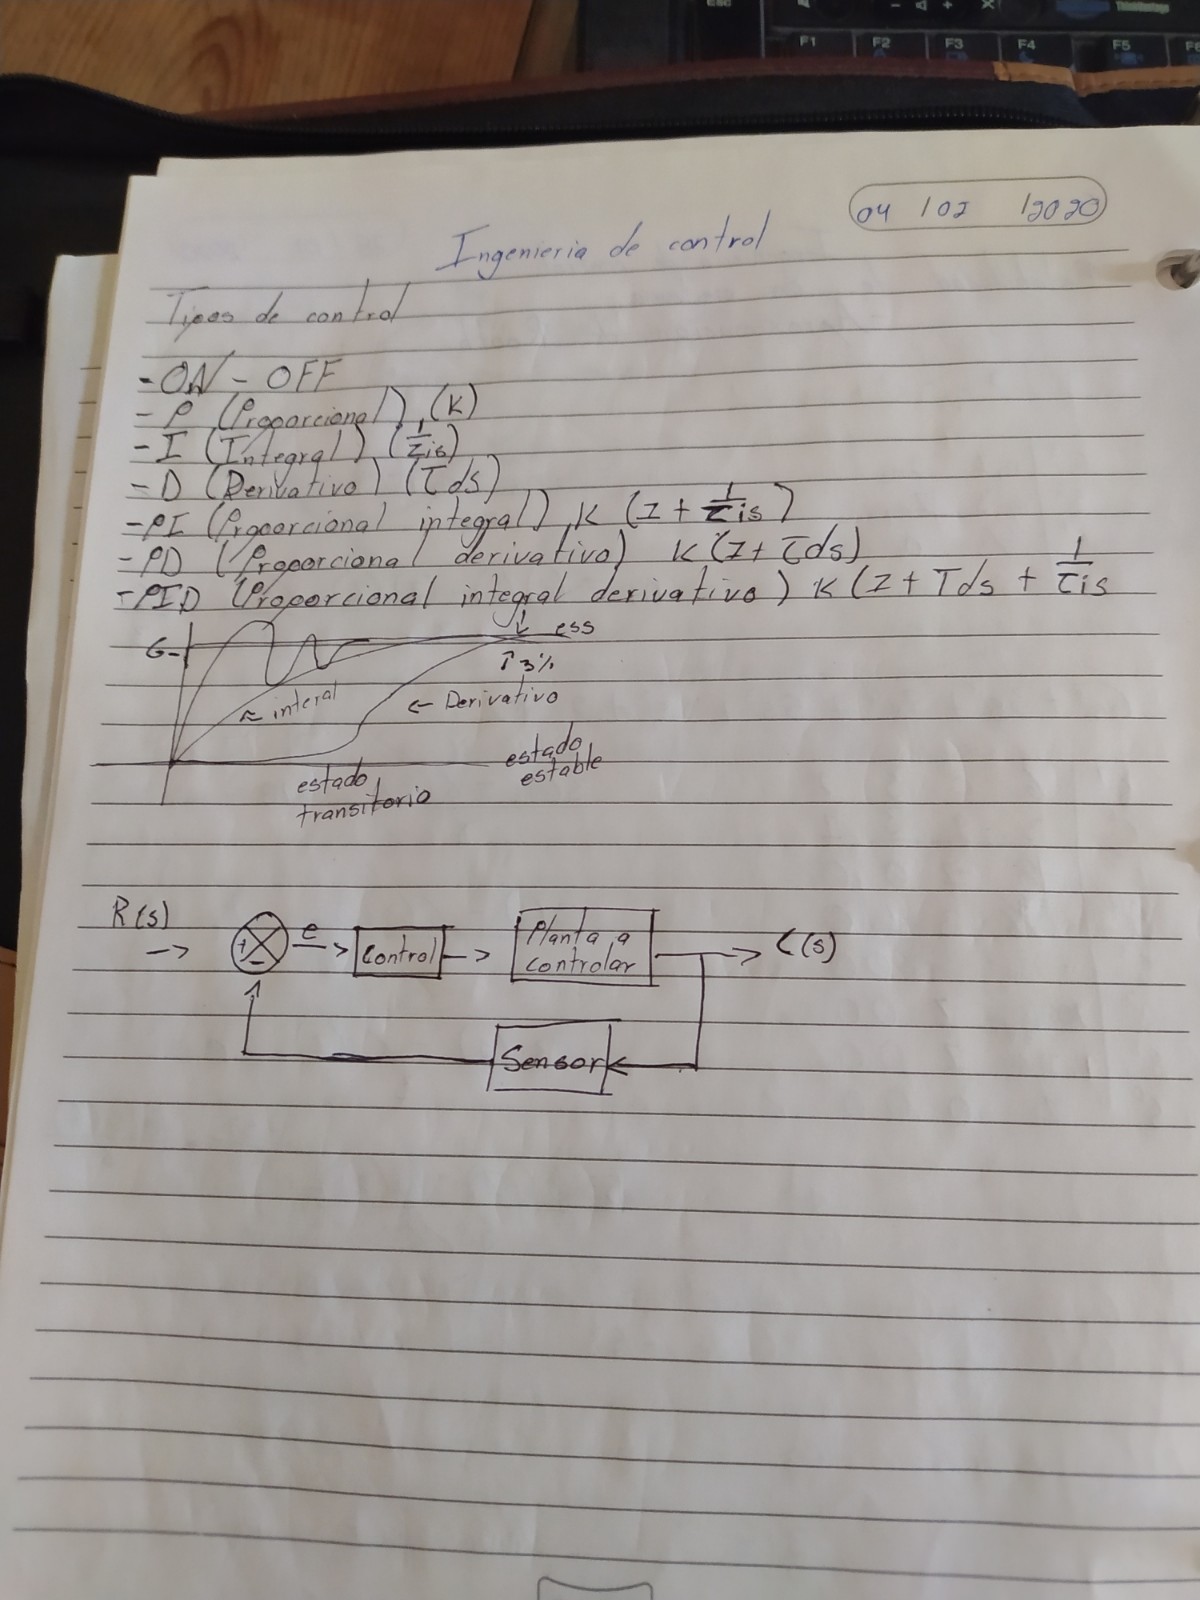 ESC
F1 F2 F3 F4 F5 F6
04 / 02 / 2020
Ingenieria de control
Tipos de control
- ON - OFF
- P (Proporcional) (K)
- I (Integral) (1/τis)
- D (Derivativo) (τds)
- PI (Proporcional integral) K (1 + 1/τis)
- PD (Proporcional derivativo) K (1 + τds)
- PID (Proporcional integral derivativo) K (1 + τds + 1/τis
6- ↓ ess
↑ 3%
← interal ← Derivativo
estado transitorio
estado estable
R(s) → + - e → Control → Planta a controlar → C(s)
Sensor